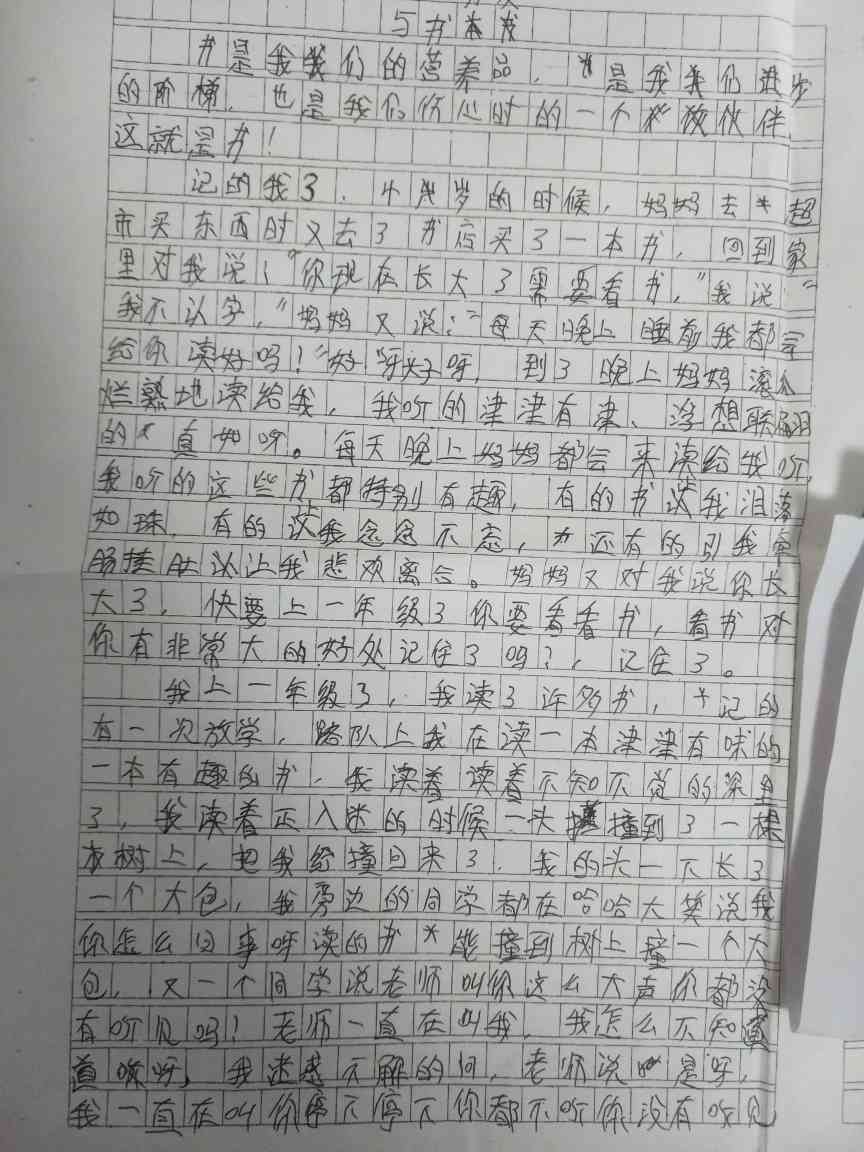 与书本交
书是我我们的营养品，是我我们进步
的阶梯，也是我们伤心时的一个伙伴
这就是书！
记的我3、4岁的时候，妈妈去超
市买东西时又去了书店买了一本书，回到家
里对我说！“你现在长大了需要看书，”我说“
我不认字，”妈妈又说：“每天晚上睡前我都会
给你读好吗！”好呀好呀，到了晚上妈妈滚瓜
烂熟地读给我，我听的津津有津、浮想联翩
的真如听。每天晚上妈妈都会来读给我听，
我听的这些书都特别有趣，有的书让我泪落
如珠，有的让我念念不忘，还有的引我牵
肠挂肚以让我悲欢离合。妈妈又对我说你长
大了，快要上一年级了你要看看书，看书对
你有非常大的好处记住了吗？，记住了。
我上一年级了，我读了许多书，记的
有一次放学，路队上我在读一本津津有味的
一本有趣的书，我读着读着不知不觉的深里
了，我读着正入迷的时候一头撞到了一棵
树上，把我给撞回来了，我的头一下长了
一个大包，我旁边的同学都在哈哈大笑说我
你怎么回事呀读的书能撞到树上撞一个大
包，又一个同学说老师叫你这么大声你都没
有听见吗！老师一直在叫我，我怎么不知道
道嘛呀，我迷惑不解的问，老师说是呀，
我一直在叫你停下停下你都不听你没有听见